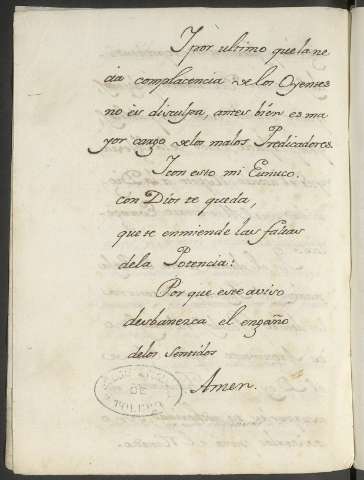 Y por ultimo que la ne
cia complacencia de los Oyentes
no es disculpa, antes bien es ma
yor cargo de los malos Predicadores.
Y con esto mi Eunuco.
con Dios te queda,
que te enmiende las faltas
de la Potencia:
Por que este aviso
desbanezca el engaño
delos sentidos
Amen.
DE
TOLEDO